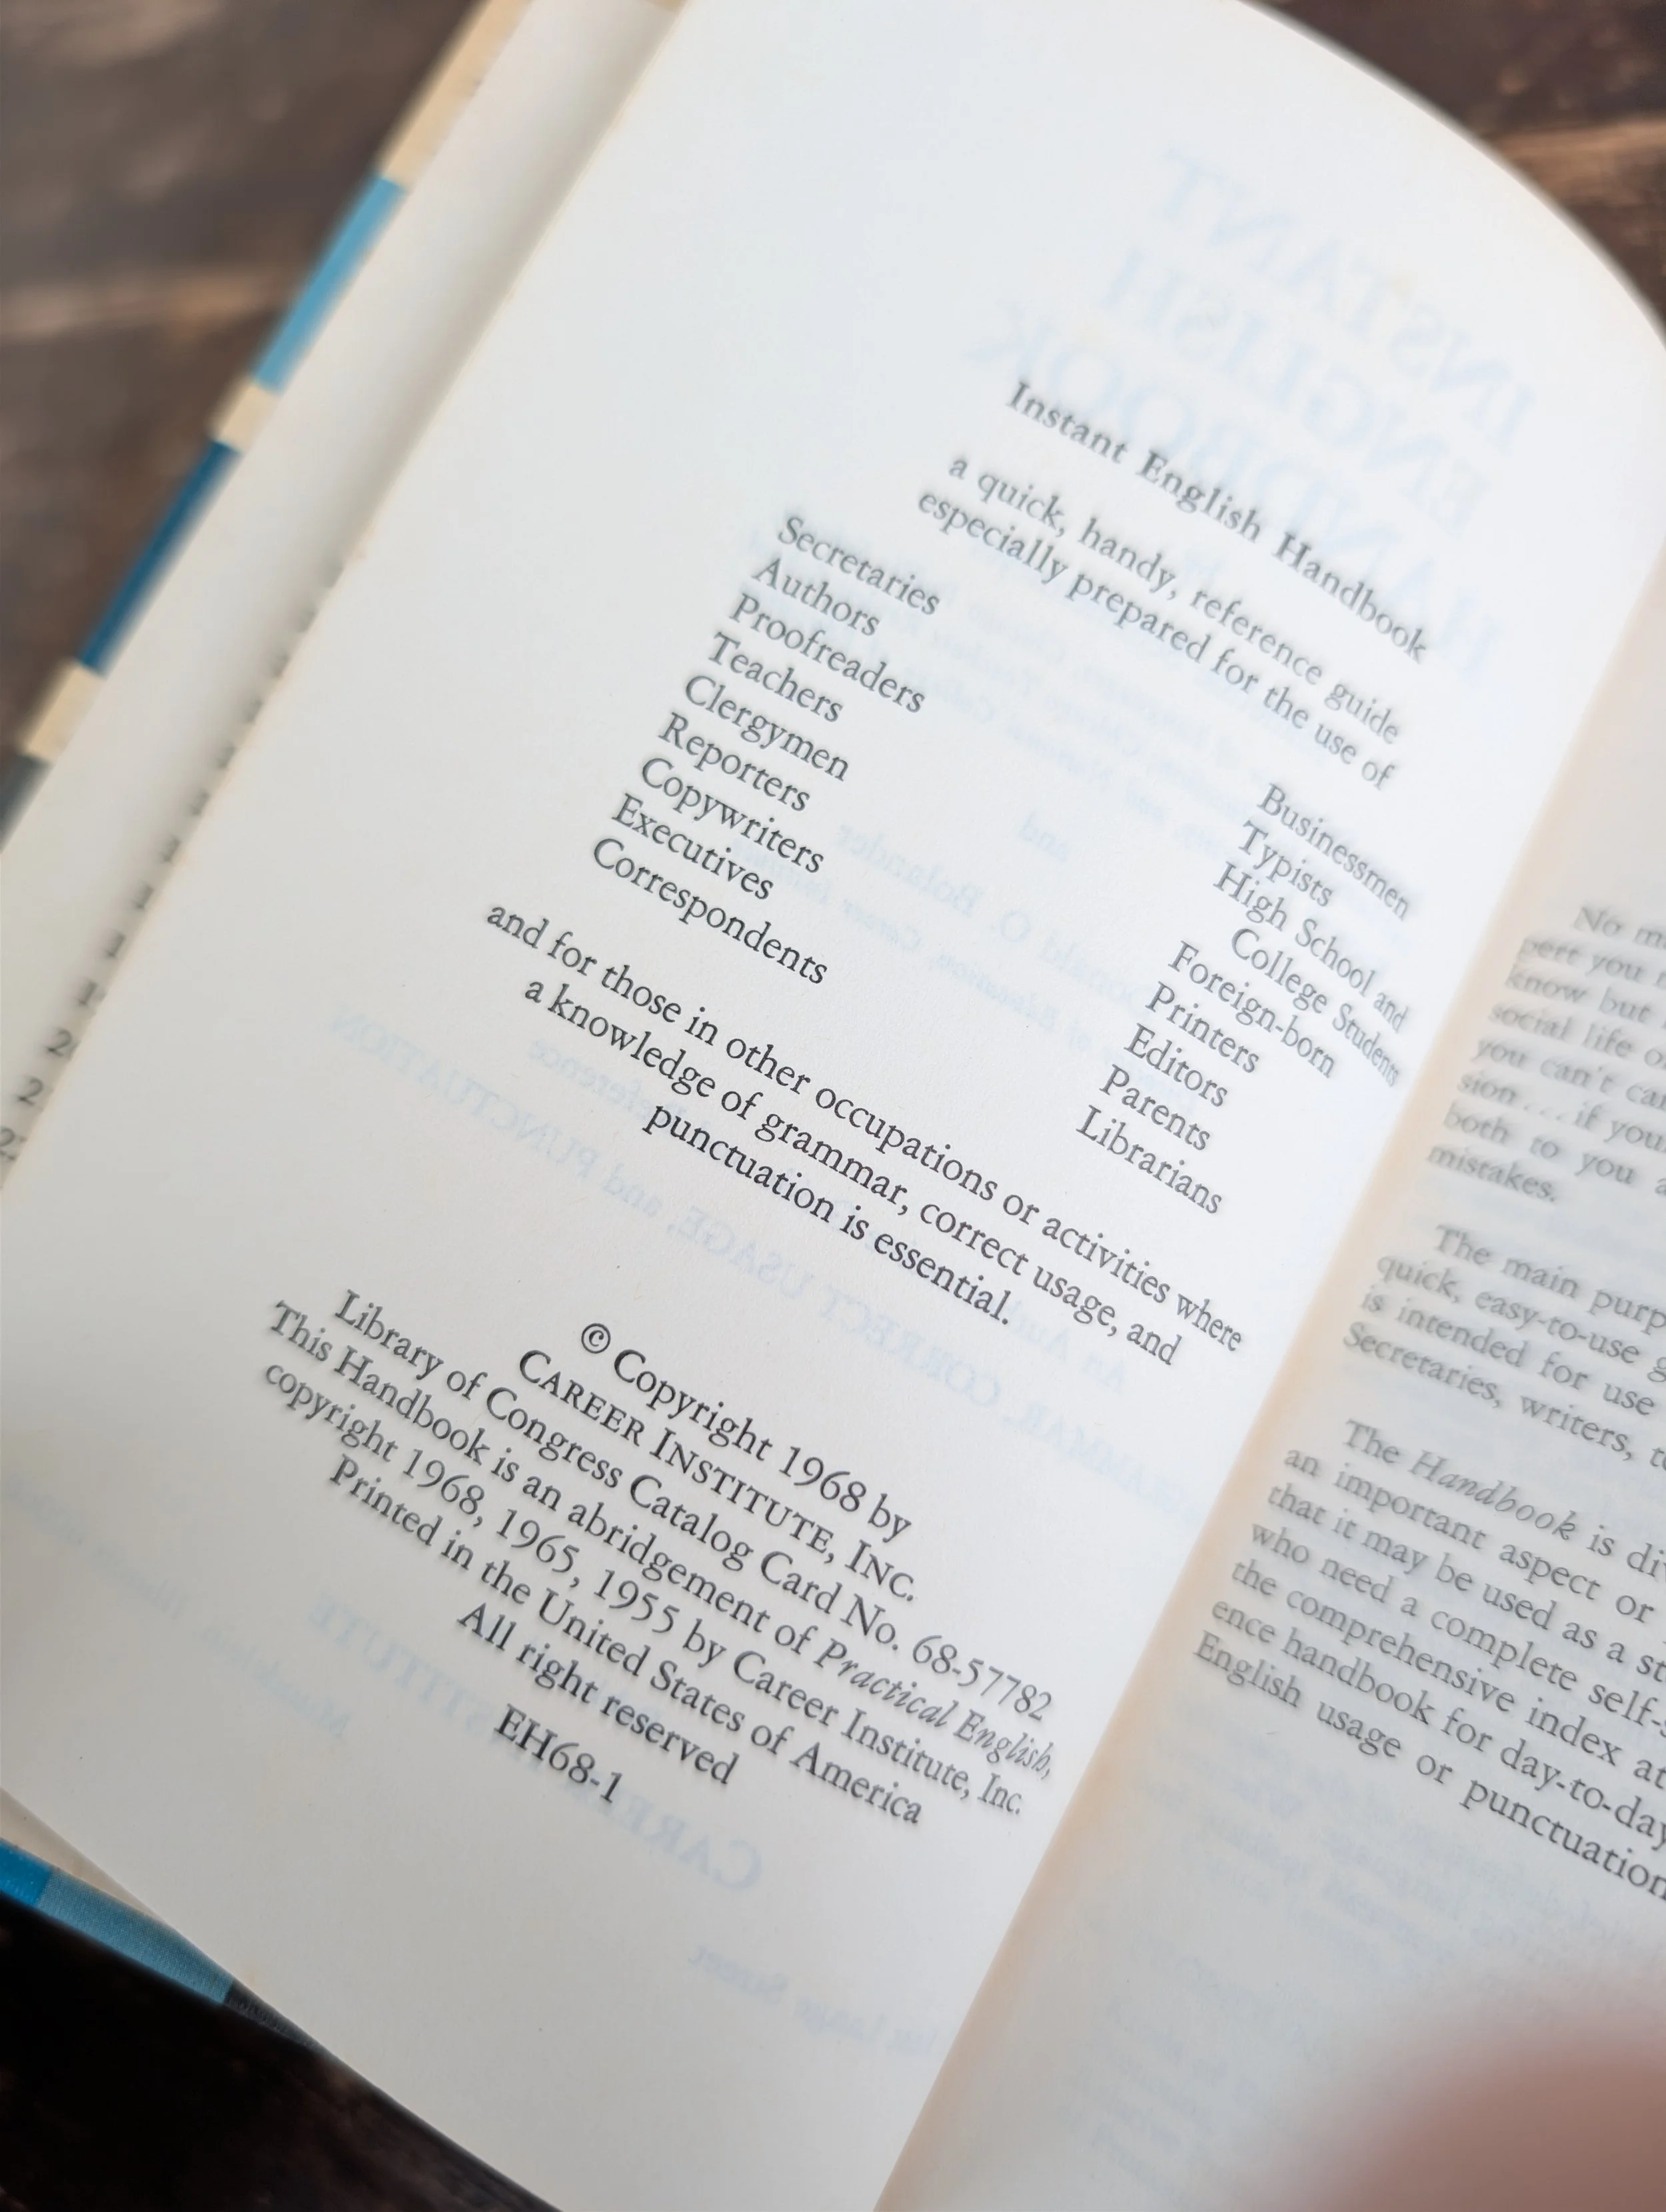 Instant English Handbook
a quick, handy, reference guide
especially prepared for the use of
Secretaries
Authors
Proofreaders
Teachers
Clergymen
Reporters
Copywriters
Executives
Correspondents
Businessmen
Typists
High School and
College Students
Foreign-born
Printers
Editors
Parents
Librarians
and for those in other occupations or activities where
a knowledge of grammar, correct usage, and
punctuation is essential.
© Copyright 1968 by
CAREER INSTITUTE, INC.
Library of Congress Catalog Card No. 68-57782
This Handbook is an abridgement of Practical English,
copyright 1968, 1965, 1955 by Career Institute, Inc.
Printed in the United States of America
All right reserved
EH68-1
No
pert you
know but
social life
you can't
sion... if
both to you
mistakes.
The main
quick, easy-to-use
is intended for use
Secretaries, writers,
The Handbook is
an important aspect or
that it may be used as a
who need a complete
the comprehensive index at
ence handbook for day-to-day
English usage or punctuation